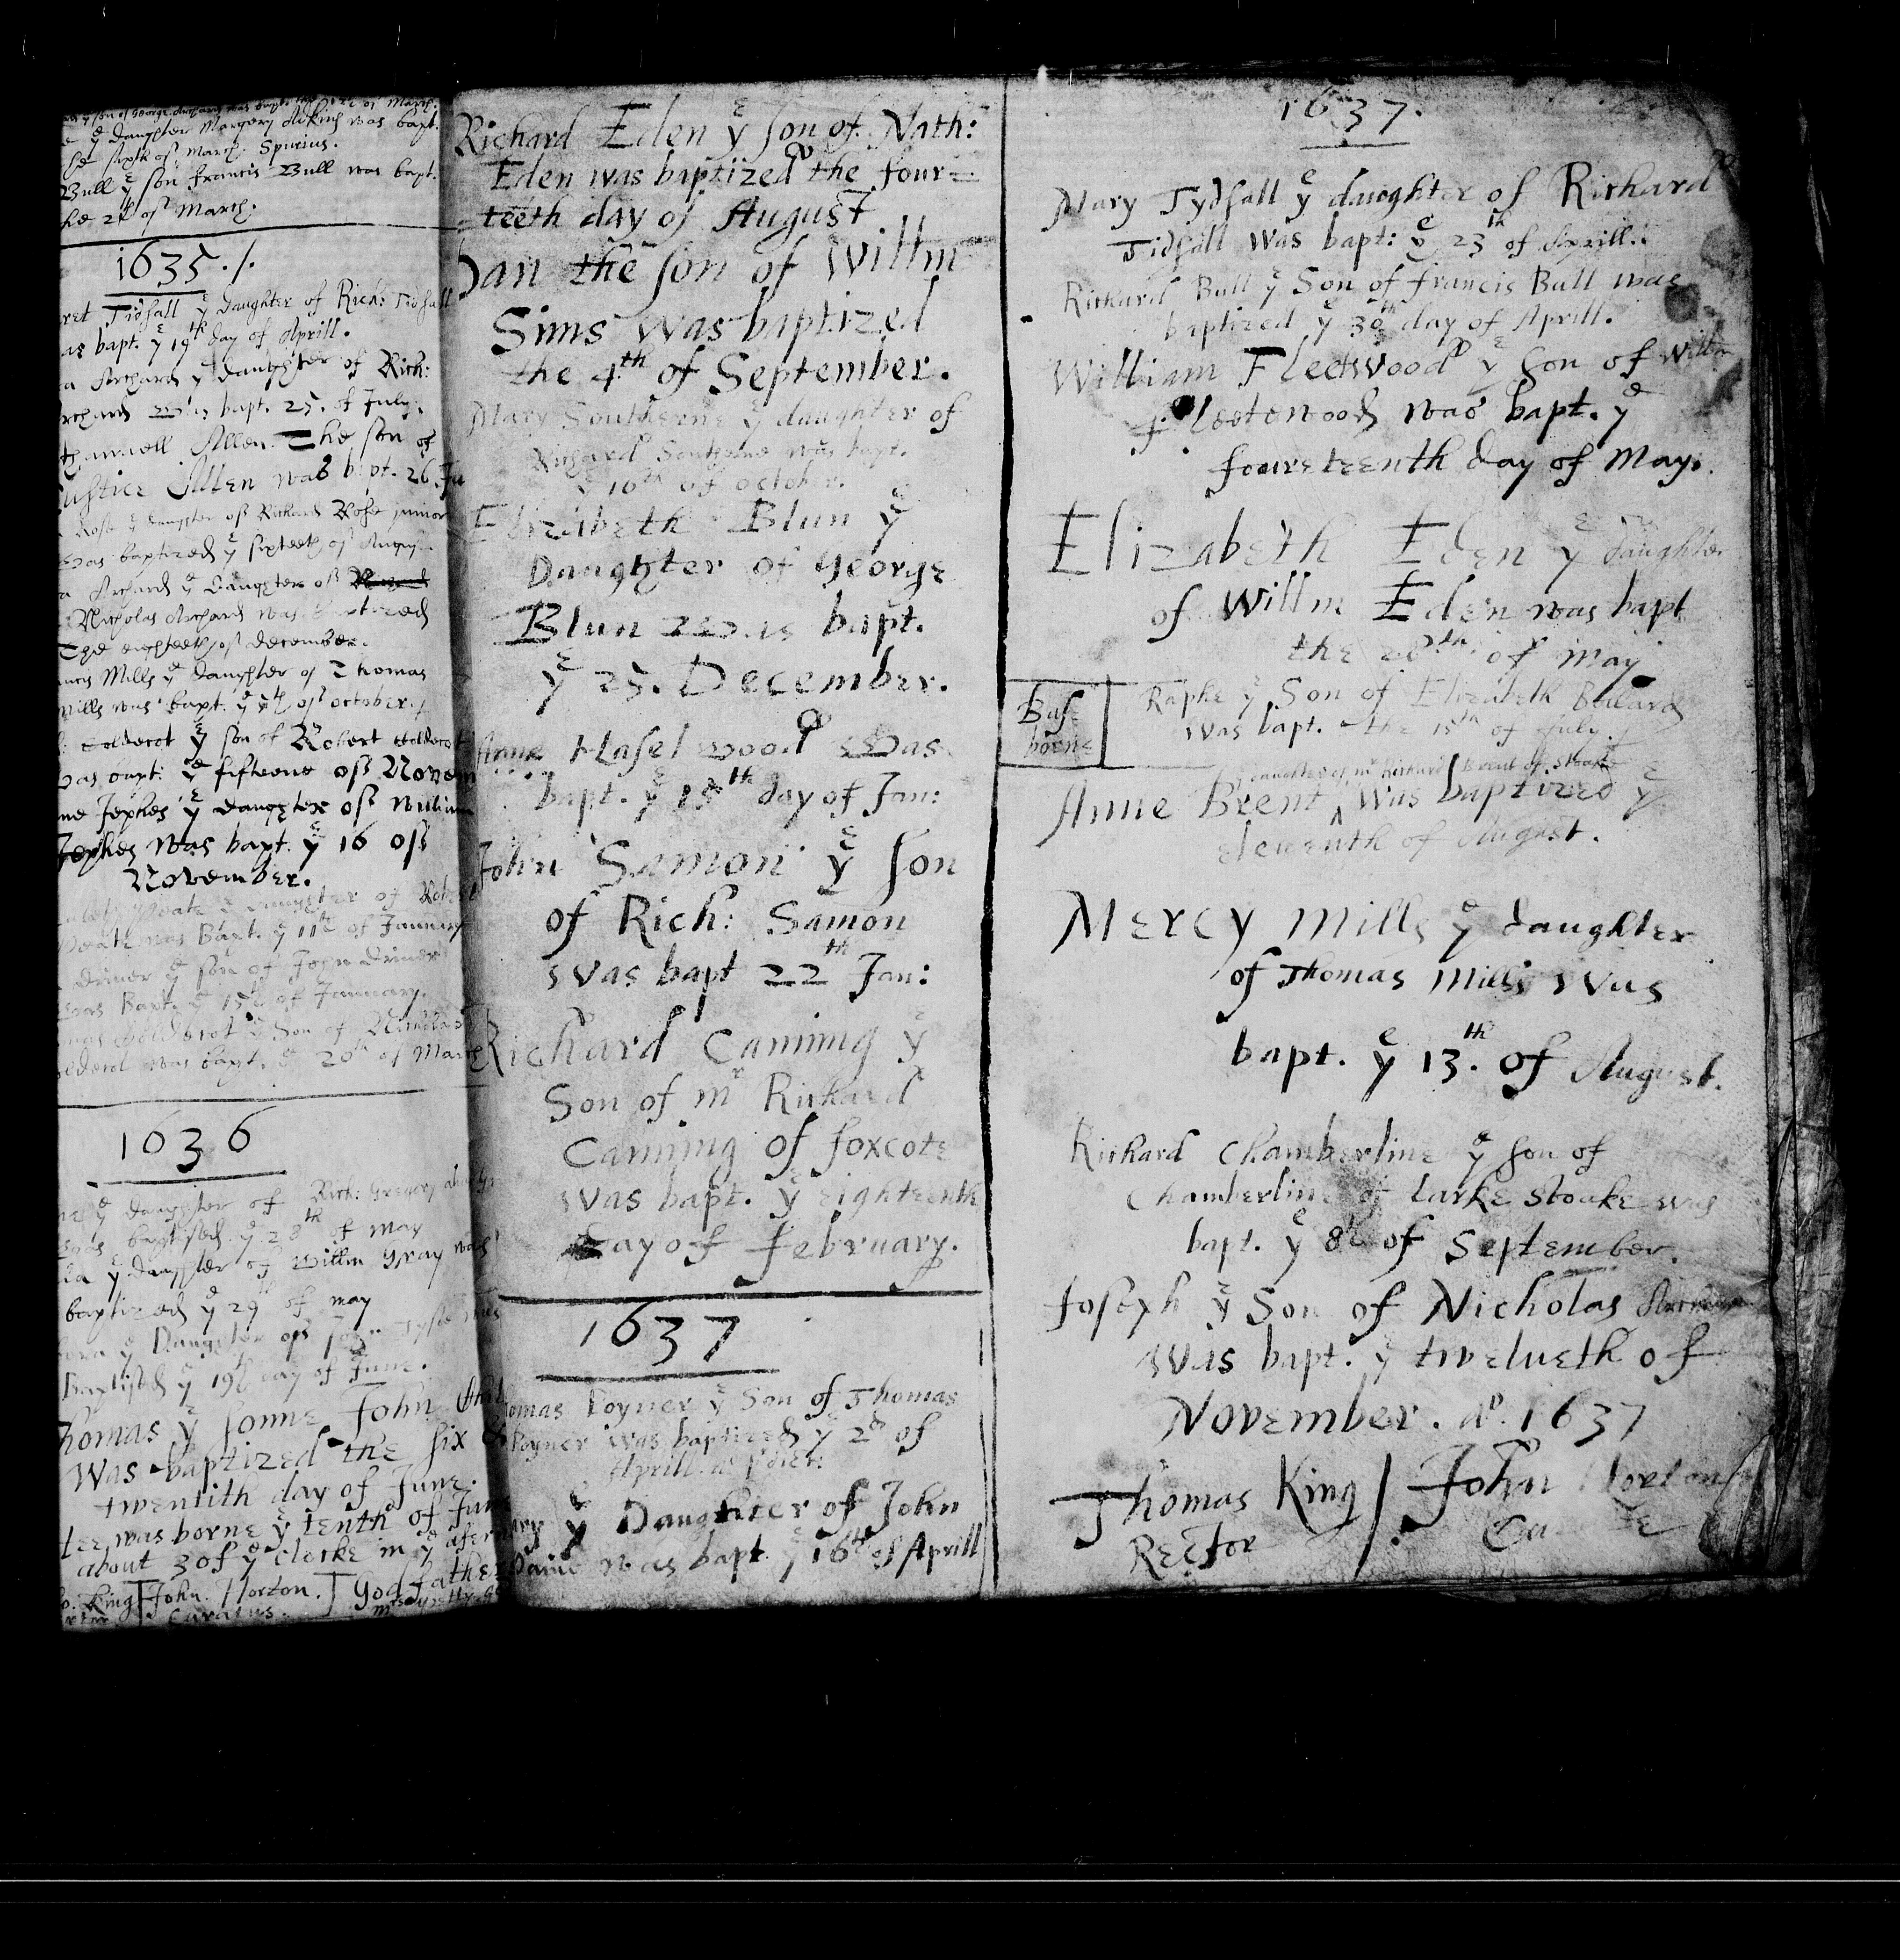 ye daughter Margery Atkins was bapt.
sixth of March. Spurius.
Bull ye son francis Bull was bapt.
of March:
1635./.
Tidsall ye daughter of Rich: Tidsall
bapt. ye 19th day of Aprill.
Archard ye daughter of Rich:
was bapt. 25. of July.
Allen. The son of
Allen was bapt. 26.
Rose ye daughter of Richard Rose junior
was baptized ye sixteeth of
Archard ye Daughter of
Nicholas Archard was baptized
The eighteeth of december.
Mills ye daughter of Thomas
Mills was bapt. ye of october.
ye son of Robert
was bapt: ye fifteene of Novem
Jephes ye daughter of William
Jephes was bapt. ye 16 of
November.
ye daughter of
was Bapt. ye 11th of January
Driuer ye son of John Driuer
was Bapt. ye 15th of January.
ye Son of Nicholas
was bapt. ye 20th of March
1636
ye daughter of Rich: Gregory
was baptised ye 28th of may
ye daughter of Willm Gray was
baptized ye 29th of may
ye Daughter of John
Baptised ye 19th day of June.
homas ye sonne John
Was baptized the six &
twentith day of June.
was borne ye tenth of June
about 3 of ye clocke in ye after
King John. Horton. Godfather
Curatus.
Richard Eden ye son of Nath:
Eden was baptized the four=
=teeth day of August
Dan the son of Willm
Sims was baptized
the 4th of September.
Mary Southerne ye daughter of
Richard Southerne was bapt.
ye 16th of october.
Elizabeth Blun ye
Daughter of George
Blun was bapt.
ye 25. December.
Anne Haselwood was
bapt. ye 15th day of Jan:
John Samon ye son
of Rich: Samon
was bapt 22th Jan:
Richard Canning ye
Son of mr Richard
Canning of foxcote
was bapt. ye eighteenth
day of february.
1637
omas Poyner ye Son of Thomas
Poyner was baptized ye 2d of
Aprill.
ary ye Daughter of John
was bapt ye 16th of Aprill
1637.
Mary Tydsall ye daughter of Richard
Tidsall was bapt: ye 23th of Aprill.
Richard Bull ye Son of francis Bull was
baptized ye 30th day of Aprill.
William Fleetwood ye Son of Willm
fleetewood was bapt. ye
foureteenth day of May.
Elizabeth Eden ye daughter
of Willm Eden was bapt
the 28th of May
Base
borne
Raphe ye Son of Elizabeth Ballard
was bapt. the 15th of July.
ye daughter of mr Richard Brent of Stoake
Anne Brent was baptized ye
eleuenth of August.
Mercy Mills ye daughter
of Thomas Mills was
bapt. ye 13.th of August.
Richard Chamberline ye son of
Chamberline of Larke Stoake was
bapt. ye 8th of September.
Joseph ye Son of Nicholas
was bapt. ye twelueth of
November. ao. 1637
Thomas King John Horton
Rector